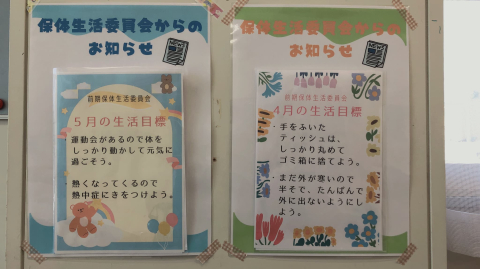 保体生活委員会からの
お知らせ
前期保体生活委員会
5月の生活目標
運動会があるので体を
しっかり動かして元気に
過ごそう。
熱くなってくるので
熱中症にきをつけよう。
保体生活委員会からの
お知らせ
前期保体生活委員会
4月の生活目標
・手をふいた
ティッシュは、
しっかり丸めて
ゴミ箱に捨てよう。
・まだ外が寒いので
半そで、たんぱんで
外に出ないようにし
よう。